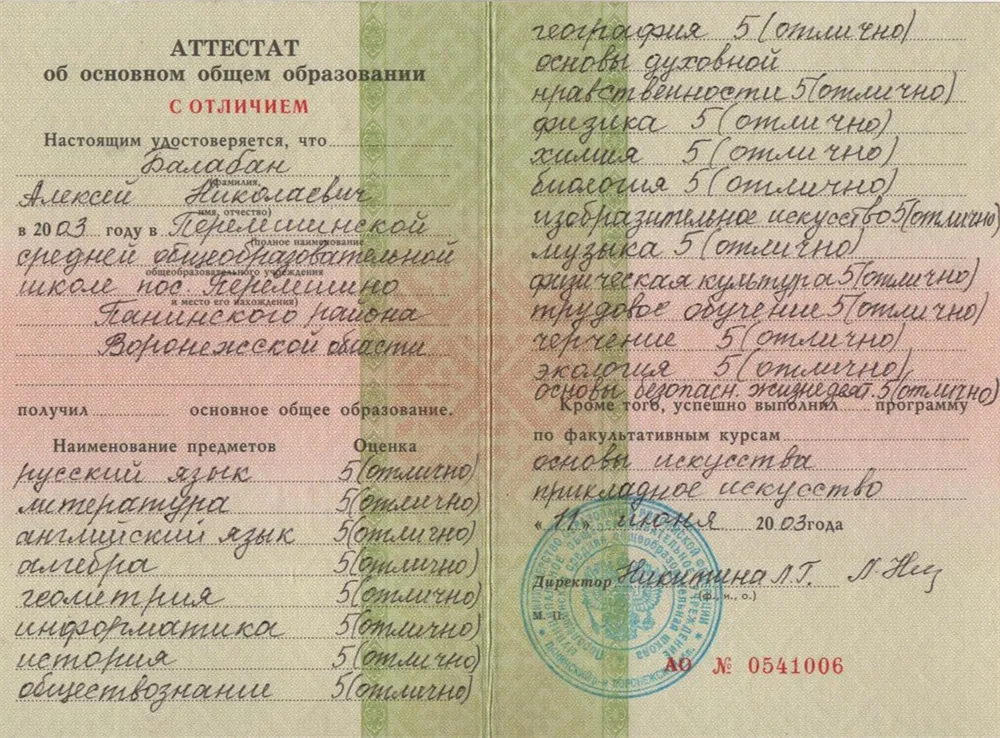 АТТЕСТАТ
об основном общем образовании
С ОТЛИЧИЕМ
Настоящим удостоверяется, что
Балабан
(фамилия,
Алексей Николаевич
имя, отчество)
в 2003 году в Перемешинской
(полное наименование
средней общеобразовательной
общеобразовательного учреждения
школе пос. Перемешино
и место его нахождения)
Панинского района
Воронежсской области
получил основное общее образование.
Наименование предметов Оценка
русский язык 5(отлично)
литература 5(отлично)
английский язык 5(отлично)
алгебра 5(отлично)
геометрия 5(отлично)
информатика 5(отлично)
история 5(отлично)
обществознание 5(отлично)
география 5(отлично)
основы духовной
нравственности 5(отлично)
физика 5(отлично)
химия 5(отлично)
биология 5(отлично)
изобразительное искусство 5(отлично)
музыка 5(отлично)
физическая культура 5(отлично)
трудовое обучение 5(отлично)
черчение 5(отлично)
экология 5(отлично)
основы безопасн. жизнедеят. 5(отлично)
Кроме того, успешно выполнил программу
по факультативным курсам
основы искусства
прикладное искусство
« 11 » июня 2003 года
Директор Никитина Л.Г.
(ф., и., о.)
М. П.
АО № 0541006